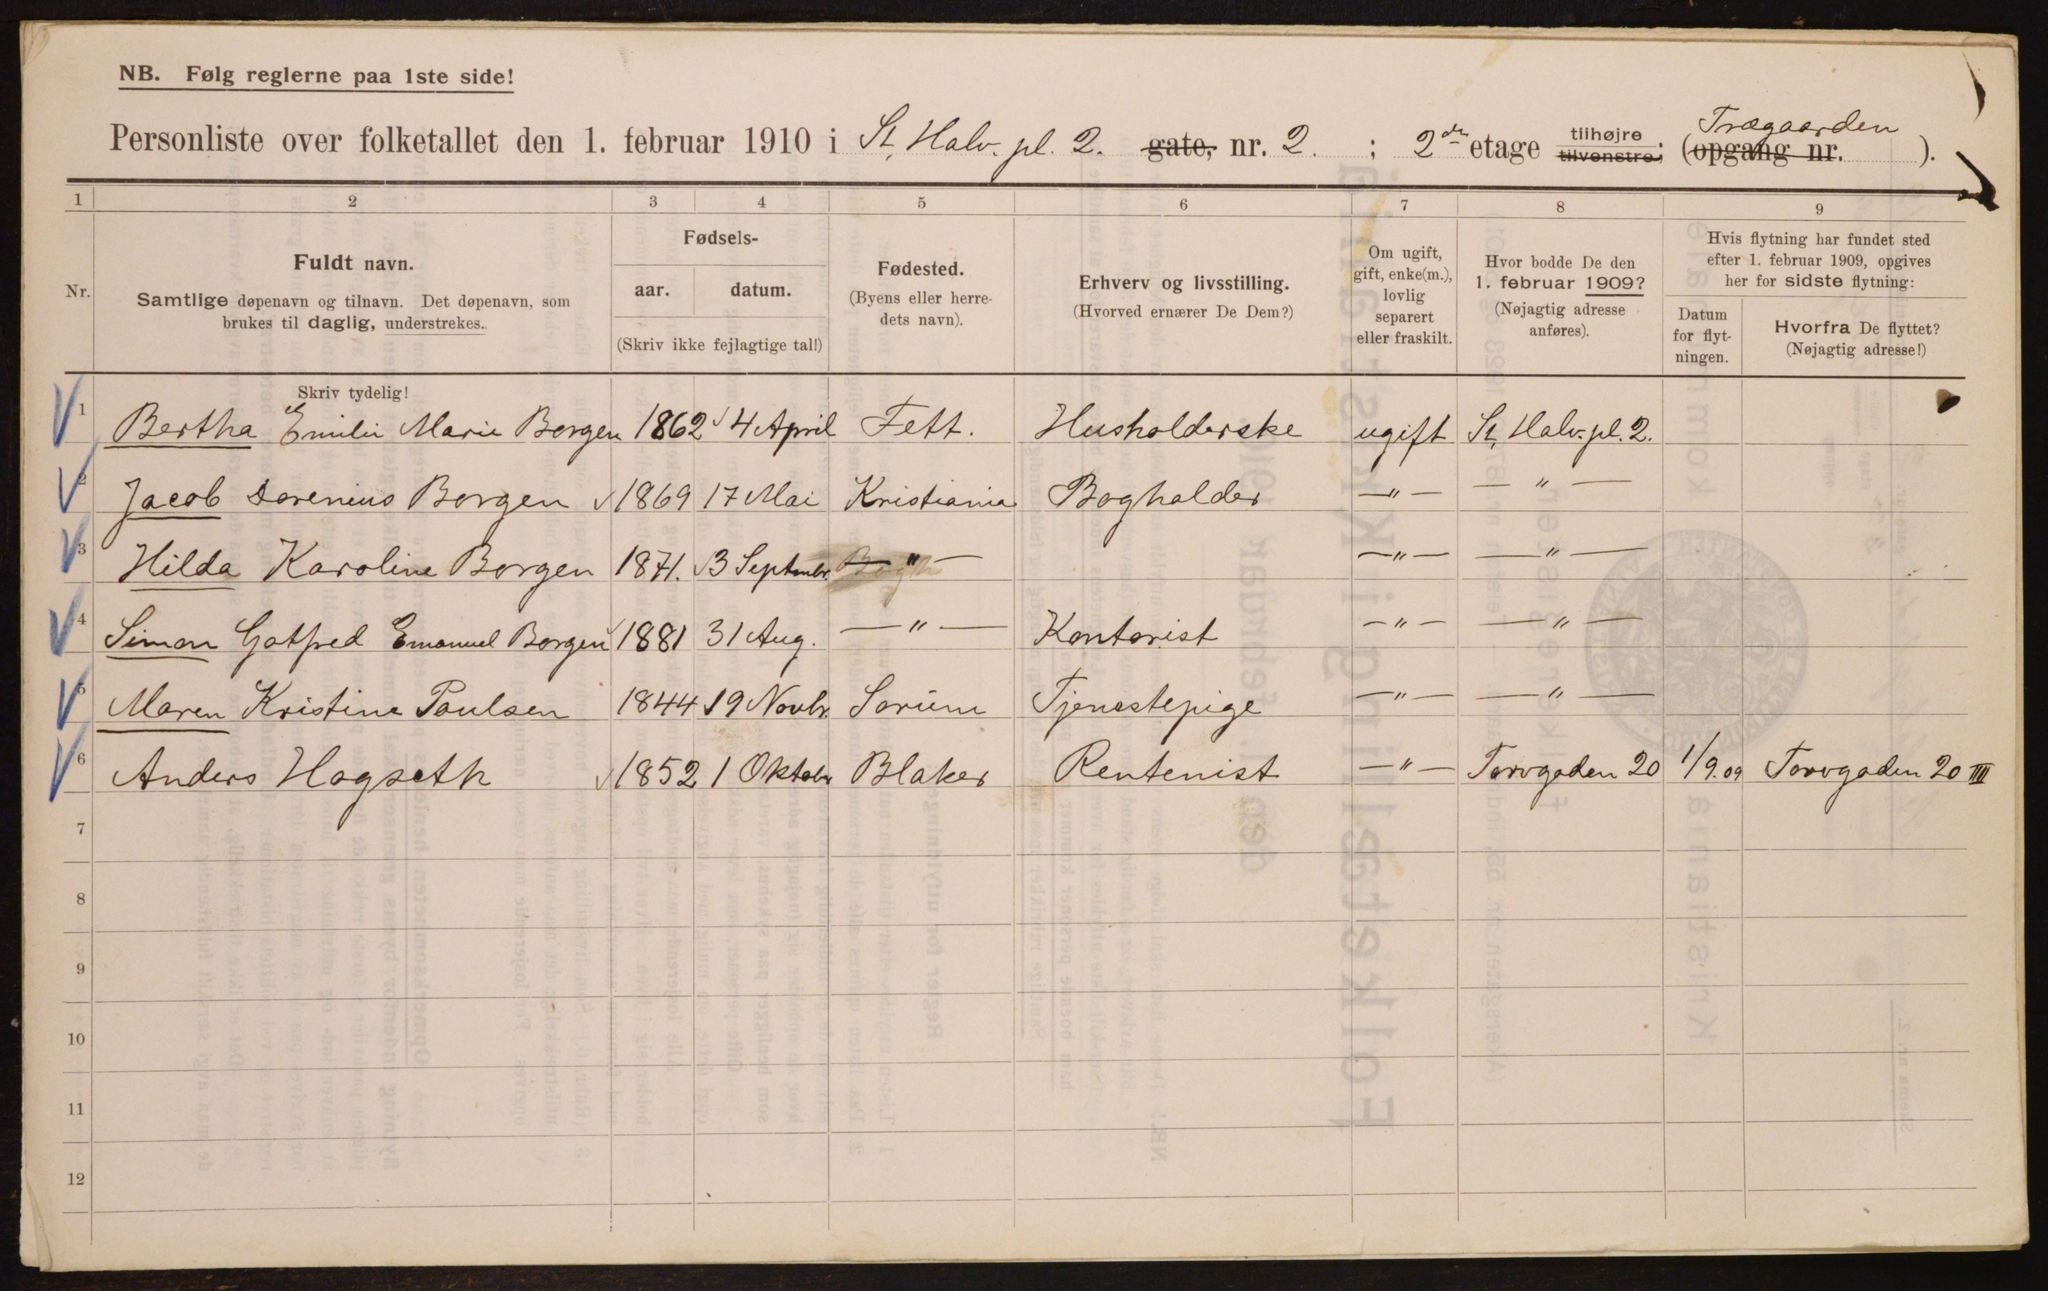 NB. Følg reglerne paa 1ste side!
Personliste over folketallet den 1. februar 1910 i St. Halv. pl. 2. gate, nr. 2. ; 2den etage tilhøjre tilvenstre; (opgang nr. Trægaarden ).
1 2 3 4 5 6 7 8 9
Nr.
Fuldt navn.
Samtlige døpenavn og tilnavn. Det døpenavn, som
brukes til daglig, understrekes.
Skriv tydelig!
Fødsels-
aar. datum.
(Skriv ikke fejlagtige tal!)
Fødested.
(Byens eller herre-
dets navn).
Erhverv og livsstilling.
(Hvorved ernærer De Dem?)
Om ugift,
gift, enke(m.),
lovlig
separert
eller fraskilt.
Hvor bodde De den
1. februar 1909?
(Nøjagtig adresse
anføres).
Hvis flytning har fundet sted
efter 1. februar 1909, opgives
her for sidste flytning:
Datum
for flyt-
ningen.
Hvorfra De flyttet?
(Nøjagtig adresse!)
1 Bertha Emilie Marie Borgen 1862 4 April Fett. Husholderske ugift St. Halv. pl. 2.
2 Jacob Dorenius Borgen 1869 17 Mai Kristiania Bogholder —"— —"—
3 Hilda Karoline Borgen 1871. 3 Septmbr. —"— —"— —"—
4 Simon Gotfred Emanuel Borgen 1881 31 Aug. —"— Kontorist —"— —"—
5 Maren Kristine Paulsen 1844 19 Novbr. Sørum Tjenestepige —"— —"—
6 Anders Hogseth 1852 1 Oktobr Blaker Rentenist —"— Torvgaden 20 1/9.09 Torvgaden 20 III
7
8
9
10
11
12